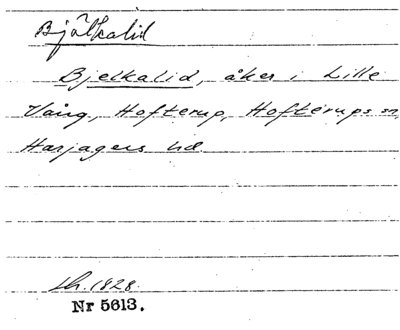 Bjälkalid
Bjelkalid, åker i Lille
Vång, Hofterup, Hofterups sn,
Harjagers hd.
1828.
Nr 5613.